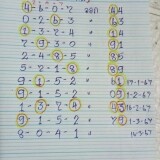 4-6-0-7 ออก 44
0-2-6-3 " 63
1-3-7-4 " 74
7-9-3-0 " 93
2-4-8-5 " 85
5-2-1-8 " 89
9-1-5-2 " 61 17-1-67
9-1-5-2 " 09 1-2-67
1-3-7-4 " 43 16-2-67
9-1-5-2 " 79 1-3-67
8-0-4-1 " 16-3-67